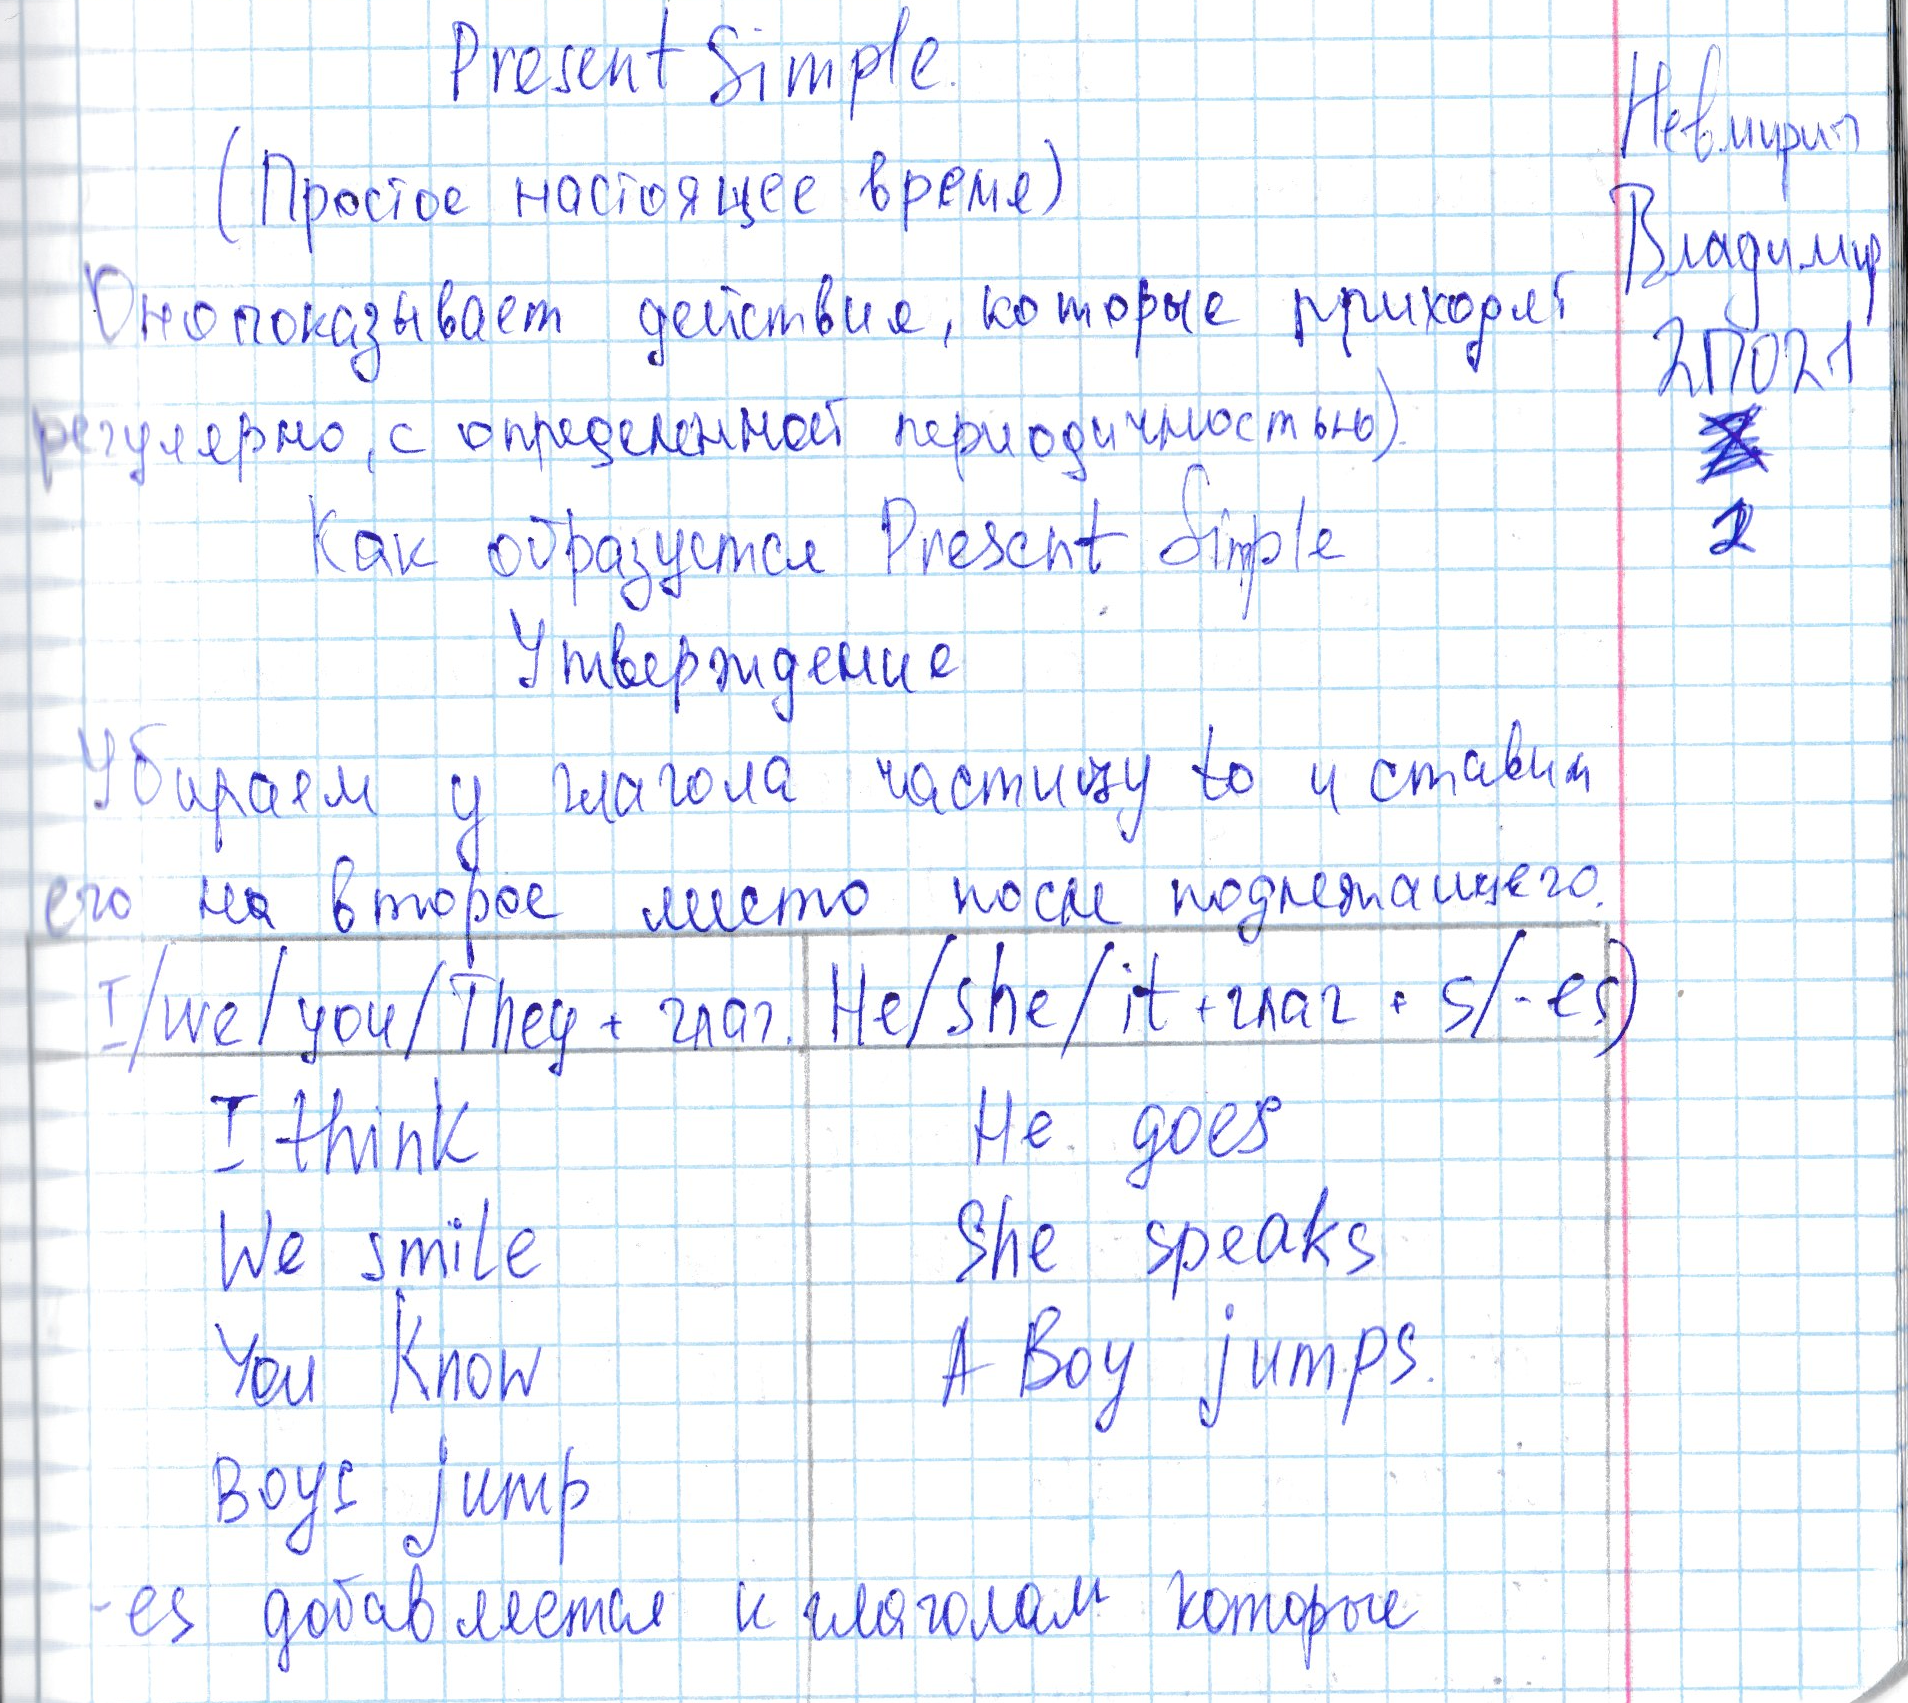 Present Simple.
(Простое настоящее время)
Оно показывает действия, которые приходят
регулярно, с определенной периодичностью).
Как образуется Present Simple
Утверждение
Убираем у глагола частицу to и ставим
его на второе место после подлежащего.
I/we/you/They + глаг. He/she/it + глаг + s/-es)
I think He goes
We smile She speaks
You Know A Boy jumps.
Boys jump
-es добавляется к глаголам которые
Владимир
2П021
2